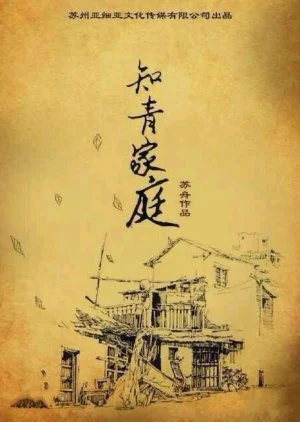 苏州亚细亚文化传媒有限公司出品
知青家庭
苏舟作品